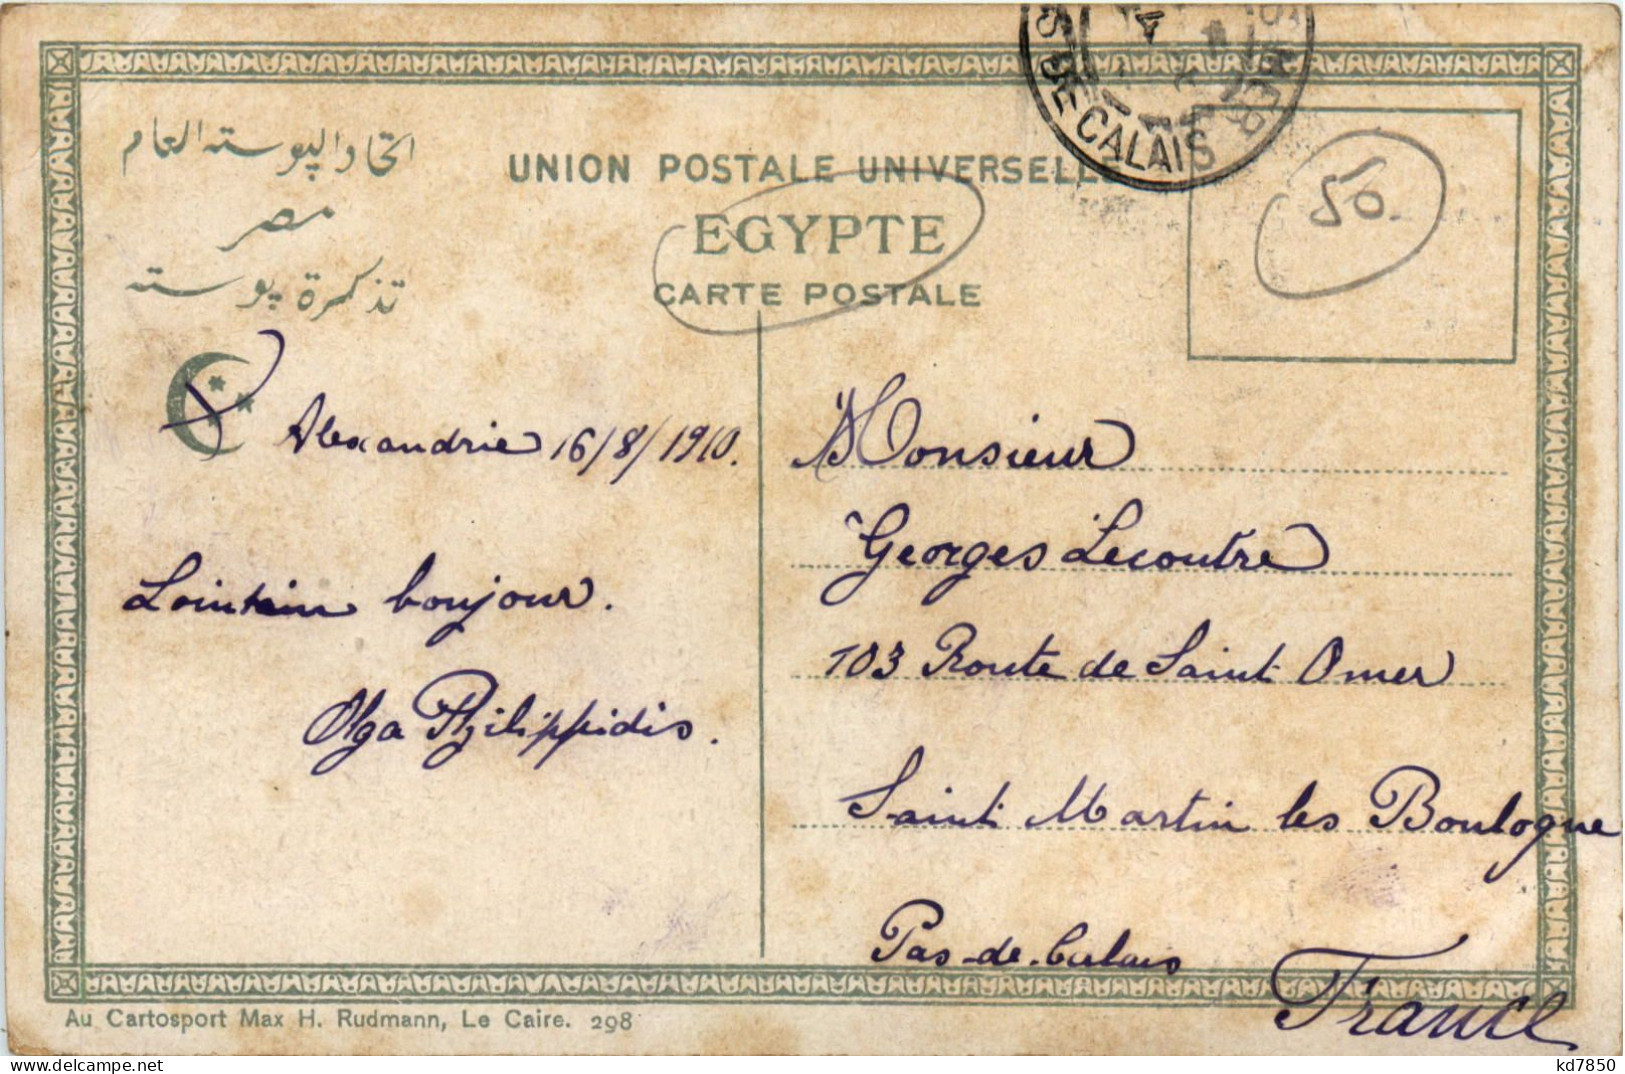 اتحاد البوسته العام
مصر
تذكرة بوسته
UNION POSTALE UNIVERSELLE
EGYPTE
CARTE POSTALE
S DE CALAIS
MER
50
Alexandrie 16/8/1910.
Lointain bonjour.
Olga Philippidis.
Monsieur
Georges Lecoutre
103 Route de Saint Omer
Saint Martin les Boulogne
Pas-de-Calais
France
Au Cartosport Max H. Rudmann, Le Caire. 298
kd7850